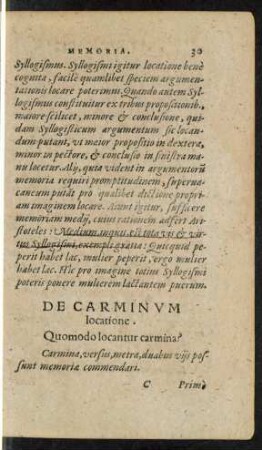 MEMORIA. 30
Syllogismus. Syllogismi igitur locatione benè
cognita, facilè quamlibet speciem argumen-
tationis locare poterimus. Quando autem Syl-
logismus constituitur ex tribus propositionib.,
maiore scilicet, minore & conclusione, qui-
dam Syllogisticum argumentum sic locan-
dum putant, vt maior propositio in dextera,
minor in pectore, & conclusio in sinistra ma-
nu locetur. Alij, quia vident in argumentorũ
memoria requiri promptitudinem, superua-
caneum putãt pro qualibet dictione propri-
am imaginem locare. Aiunt igitur, sufficere
memoriam medij, cuius rationem adfert Ari-
stoteles: Medium, inquit, est tota vis & vir-
tus Syllogismi, exempli gratia: Quicquid pe-
perit habet lac, mulier peperit, ergo mulier
habet lac. Hîc pro imagine totius Syllogismi
poteris ponere mulierem lactantem puerum.
DE CARMINVM
locatione.
Quomodo locantur carmina?
Carmina, versus, metra, duabus vijs pos-
sunt memoriæ commendari.
C Primò